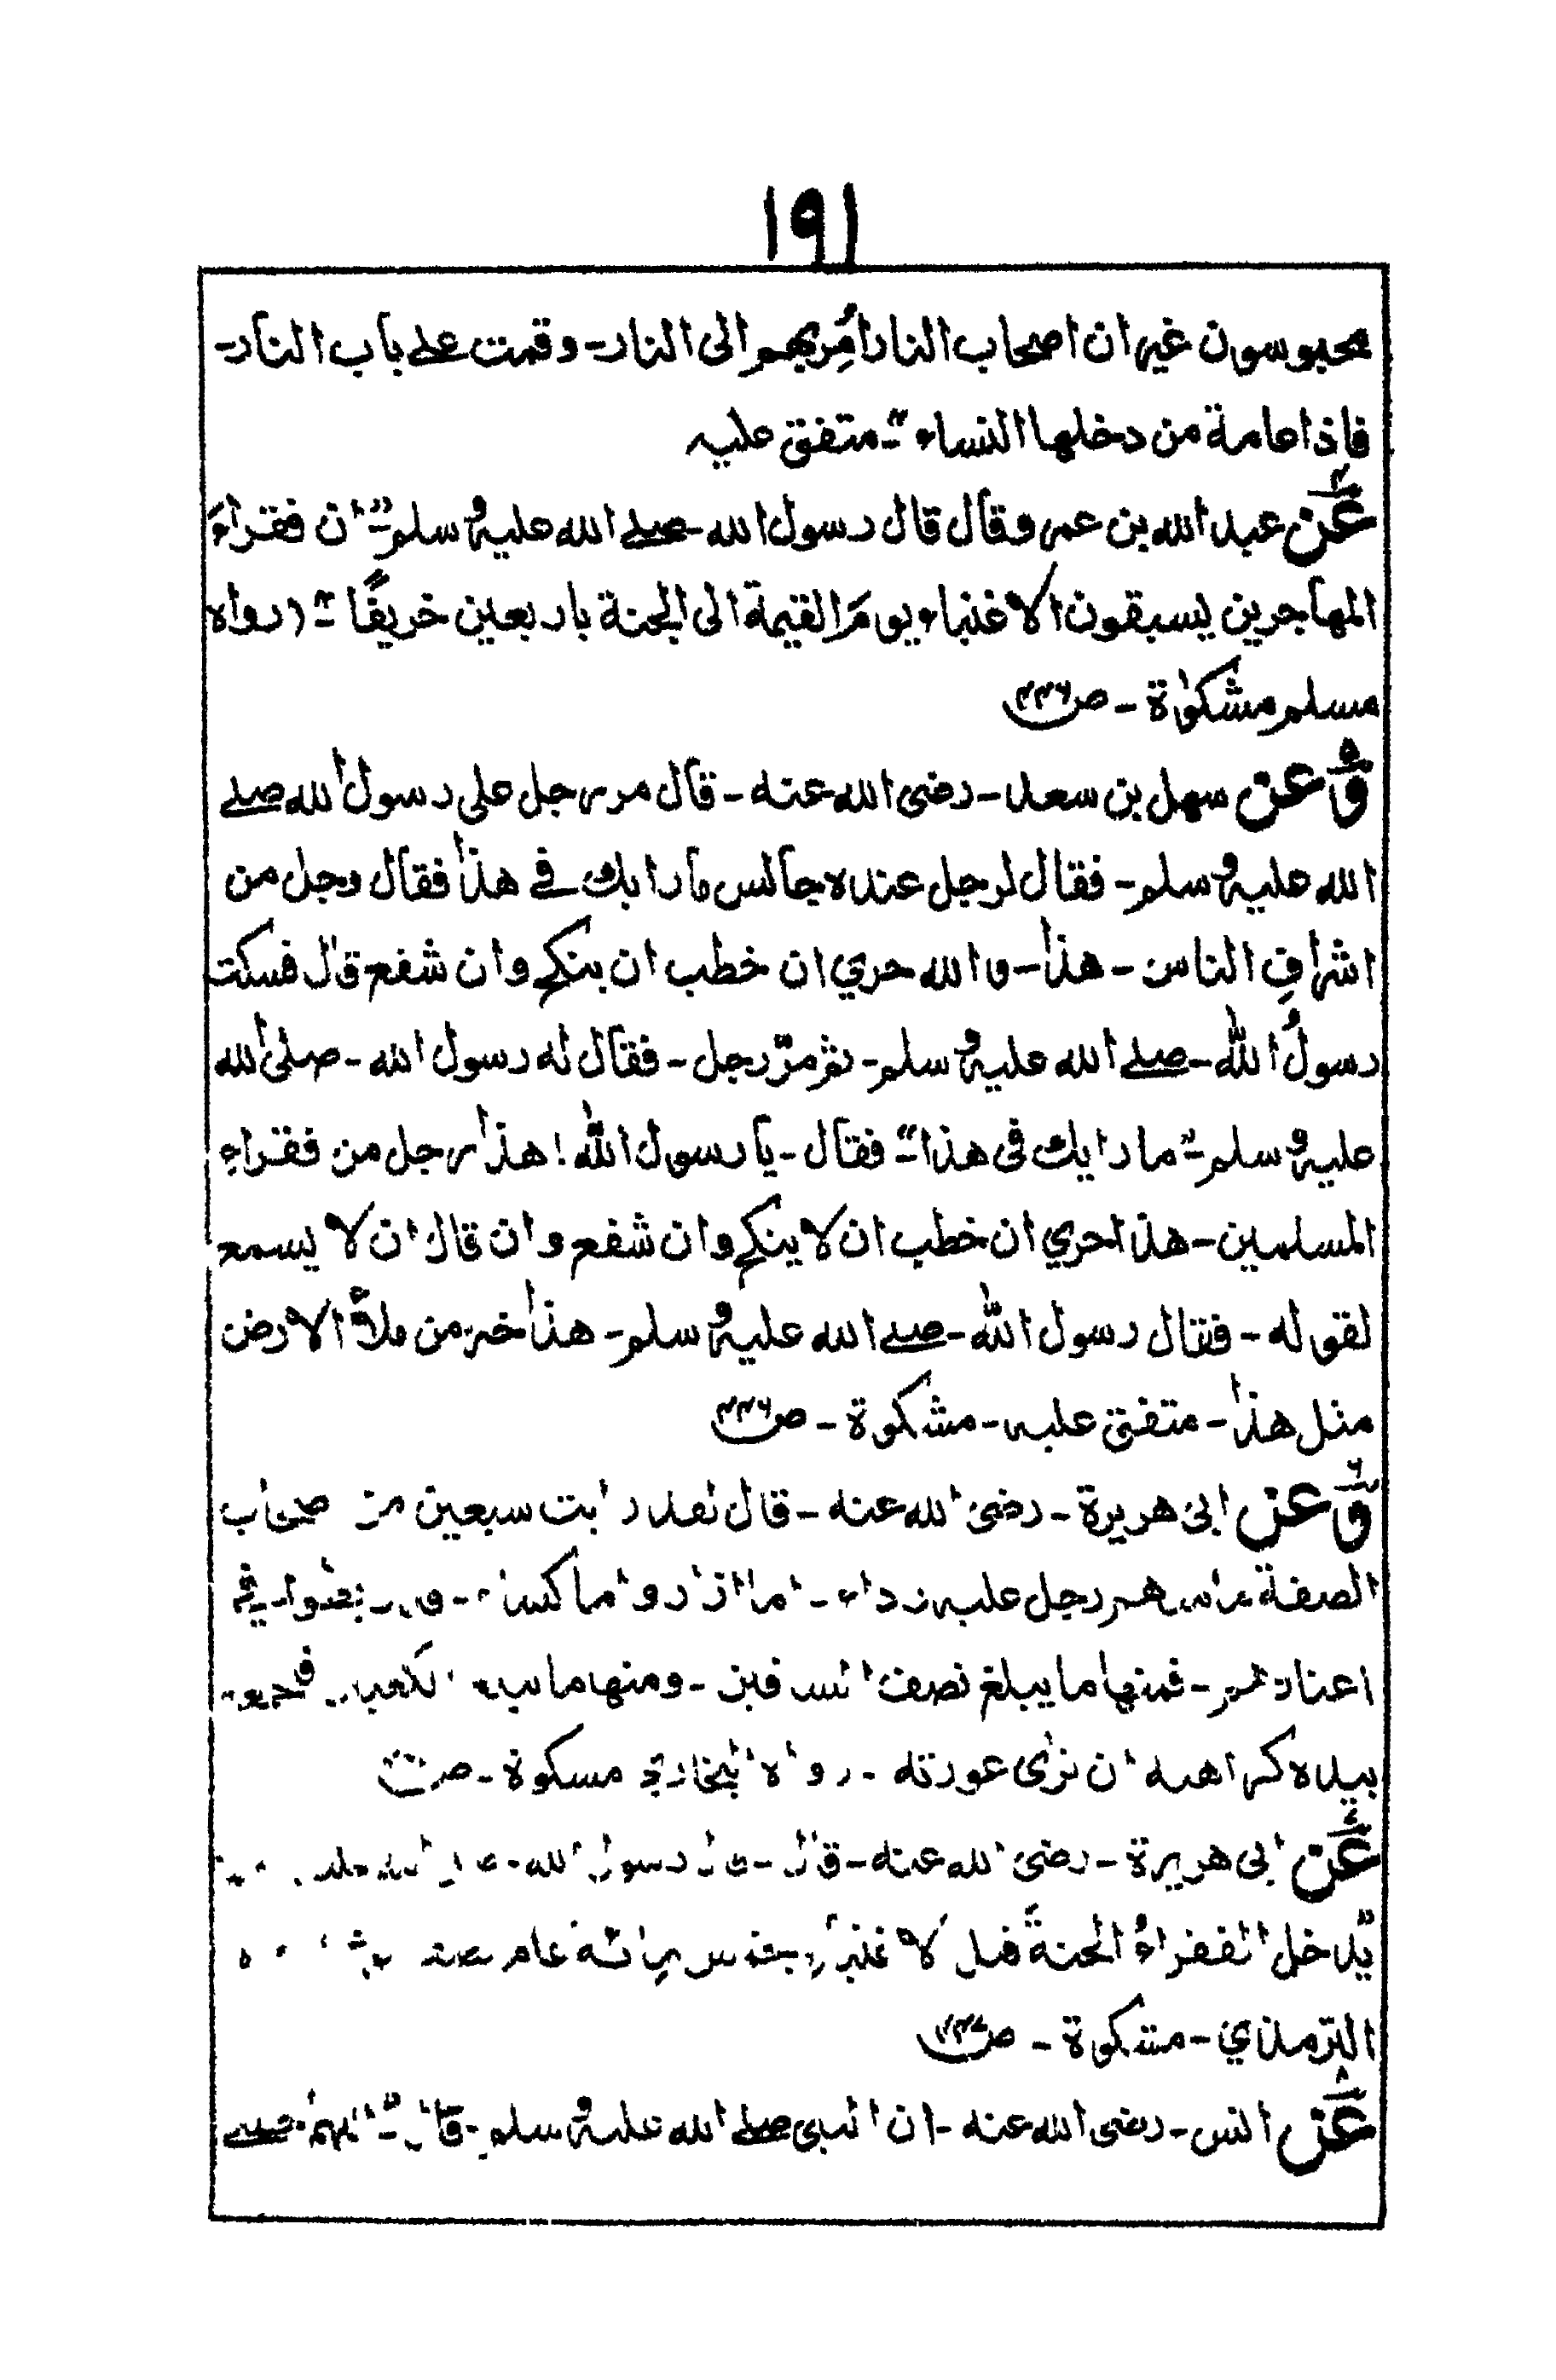 ١٩١
محبوسون غير ان اصحاب النار اُمِر بهم الى النار- وقمت على باب النار-
فاذا عامة من دخلها النساء"- متفق عليه
٤ عَن عبد الله بن عمر وقال قال رسول الله- صلے الله عليه وسلم-" ان فقراءَ
المهاجرين يسبقون الاغنياء يومَ القيمة الى الجنة باربعين خريفًا"- (رواه
مسلم مشكوٰة - ص٤٤٦
٥ وَعن سهل بن سعد- رضى الله عنه- قال مر رجل على رسول الله صلے
الله عليه وسلم- فقال لرجل عنده جالس ما رايك فے هذا فقال رجل من
اشرافِ الناس- هذا- والله حري ان خطب ان ينكح وان شفع قال فسكت
رسولُ الله- صلے الله عليه وسلم- ثم مرّ رجل- فقال له رسول الله- صلى الله
عليه وسلم-" ما رايك فى هذا"- فقال- يا رسول الله! هذا رجل من فقراءِ
المسلمين- هذا حري ان خطب ان لا ينكح وان شفع وان قال ان لا يسمع
لقوله- فقال رسول الله- صلے الله عليه وسلم- هذا خير من ملأ الارض
مثل هذا- متفق عليه- مشكوة- ص٤٤٦
٦ وَعن ابى هريرة- رضى الله عنه- قال لقد رايت سبعين من اصحاب
الصفة ما منهم رجل عليه رداء- اما ازار واما كساء- قد ربطوا فے
اعناقهم- فمنها ما يبلغ نصف الساقين- ومنها ما يبلغ الكعبين فيجمعه
بيده كراهية ان ترى عورته- رواه البخاري مشكوة- ص
٧ عَن ابى هريرة- رضى الله عنه- قال- قال رسول الله- صلے الله عليه
"يدخل الفقراءُ الجنةَ قبل الاغنياء بخمس مائة عام نصف
الترمذي- مشكوة- ص٤٤٧
٨ عَن انس- رضى الله عنه- ان النبى صلے الله عليه وسلم- قال-" اللهم